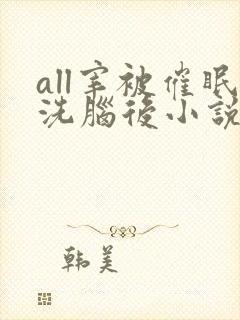 all宰被催眠
洗腦後小説
韩美